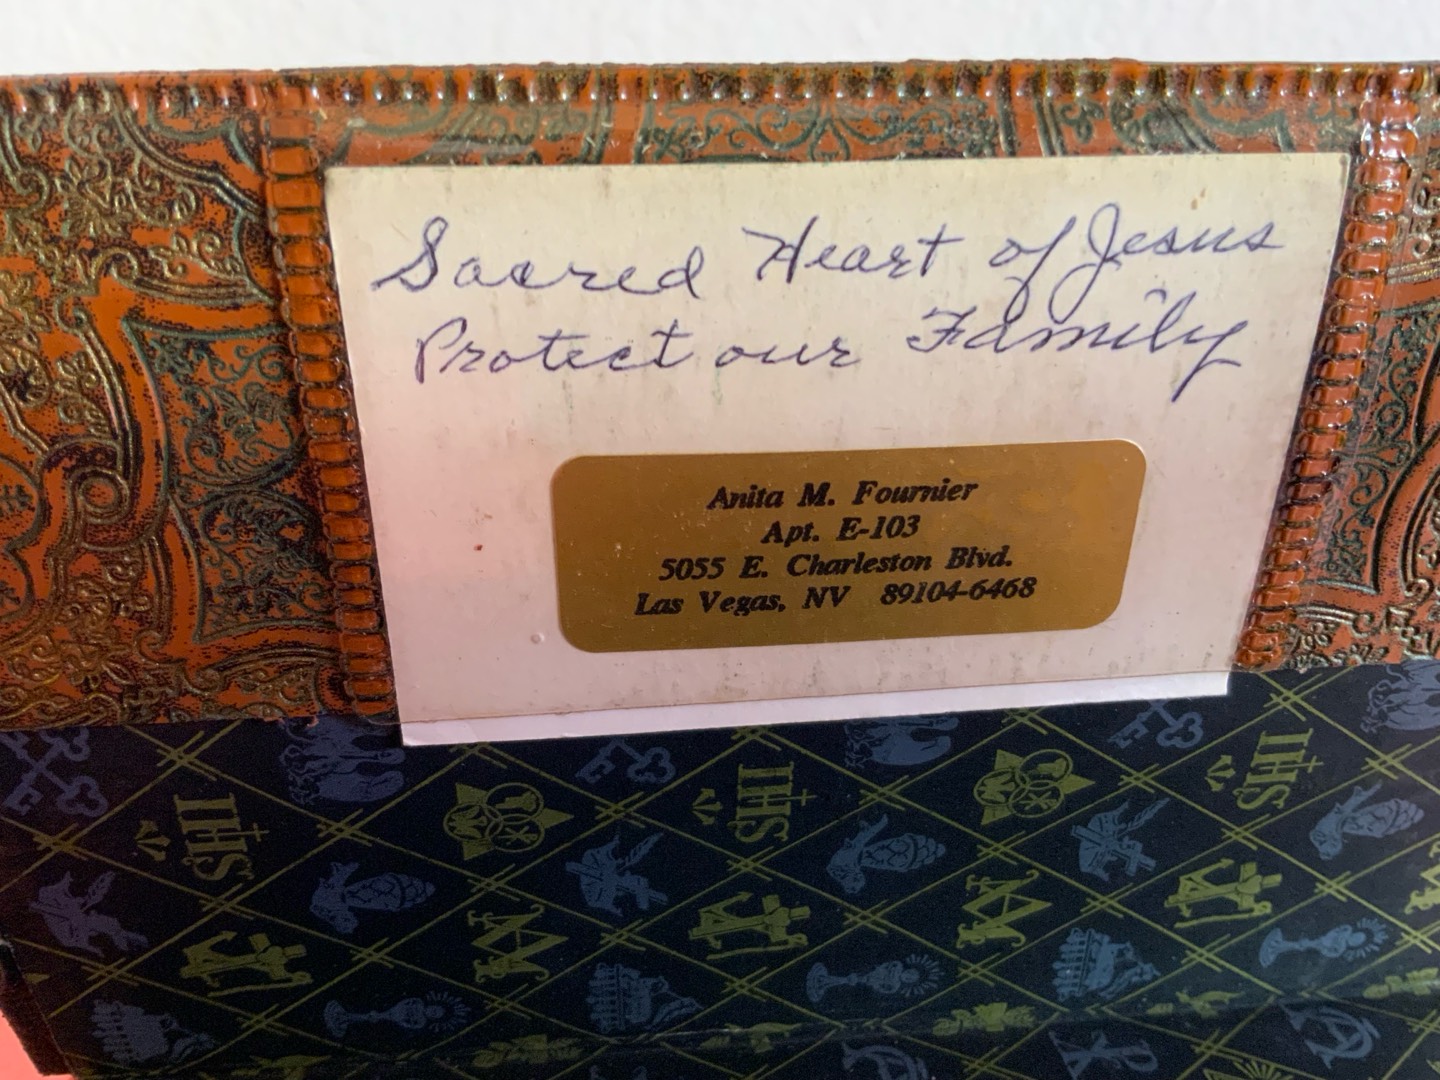 Sacred Heart of Jesus
Protect our Family
Anita M. Fournier
Apt. E-103
5055 E. Charleston Blvd.
Las Vegas, NV 89104-6468
IHS
IHS
IHS